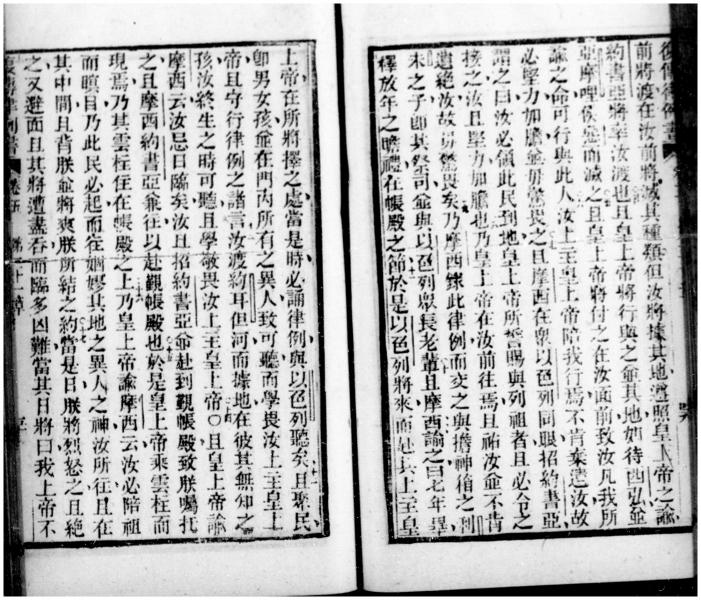 復傳律例書
前將渡在汝前將滅其種類但汝將據其地遵照皇上帝之諭
約書亞將率汝渡也且皇上帝將行與之並其地如待西弘並
亞摩哩侯惡而滅之且皇上帝將付之在汝面前致汝凡我所
諭之命可行與此人汝上主皇上帝陪我行焉不肯棄遺汝故
必堅力加膽並毋驚畏之且摩西在衆以色列同眼招約書亞
謂之曰汝必領此民到地皇上帝所誓賜與列祖者且必令之
接之汝且堅力加膽也乃皇上帝在汝前往焉且祐汝並不肯
遺絶汝故毋驚畏矣乃摩西錄此律例而交之與擔神箱之利
未之子即其祭司並與以色列衆長老輩且摩西諭之曰七年畢
釋放年之瞻禮在帳殿之節於是以色列將來而赴汝上主皇
上帝在所將擇之處當是時必誦律例與以色列聽矣且聚民
即男女孩並在門內所有之異人致可聽而學畏汝上主皇上
帝且守行律例之諸言汝渡約耳但河而據地在彼其無知之
孩汝終生之時可聽且學敬畏汝上主皇上帝〇且皇上帝諭
摩西云汝忌日臨矣汝且招約書亞並赴到覲帳殿致朕囑托
之且摩西約書亞兼往以赴覲帳殿也於是皇上帝乘雲柱而
現焉乃其雲柱住在帳殿之上乃皇上帝諭摩西云汝必陪祖
而瞑目乃此民必起而往姻嫪其地之異人之神汝所往且在
其中間且背朕並將爽朕所結之約當是日朕將烈怒之且絶
之又避面且其將遭盡吞而臨多凶難當其日將曰我上帝不
復傳律例書 卷五 第三十一章